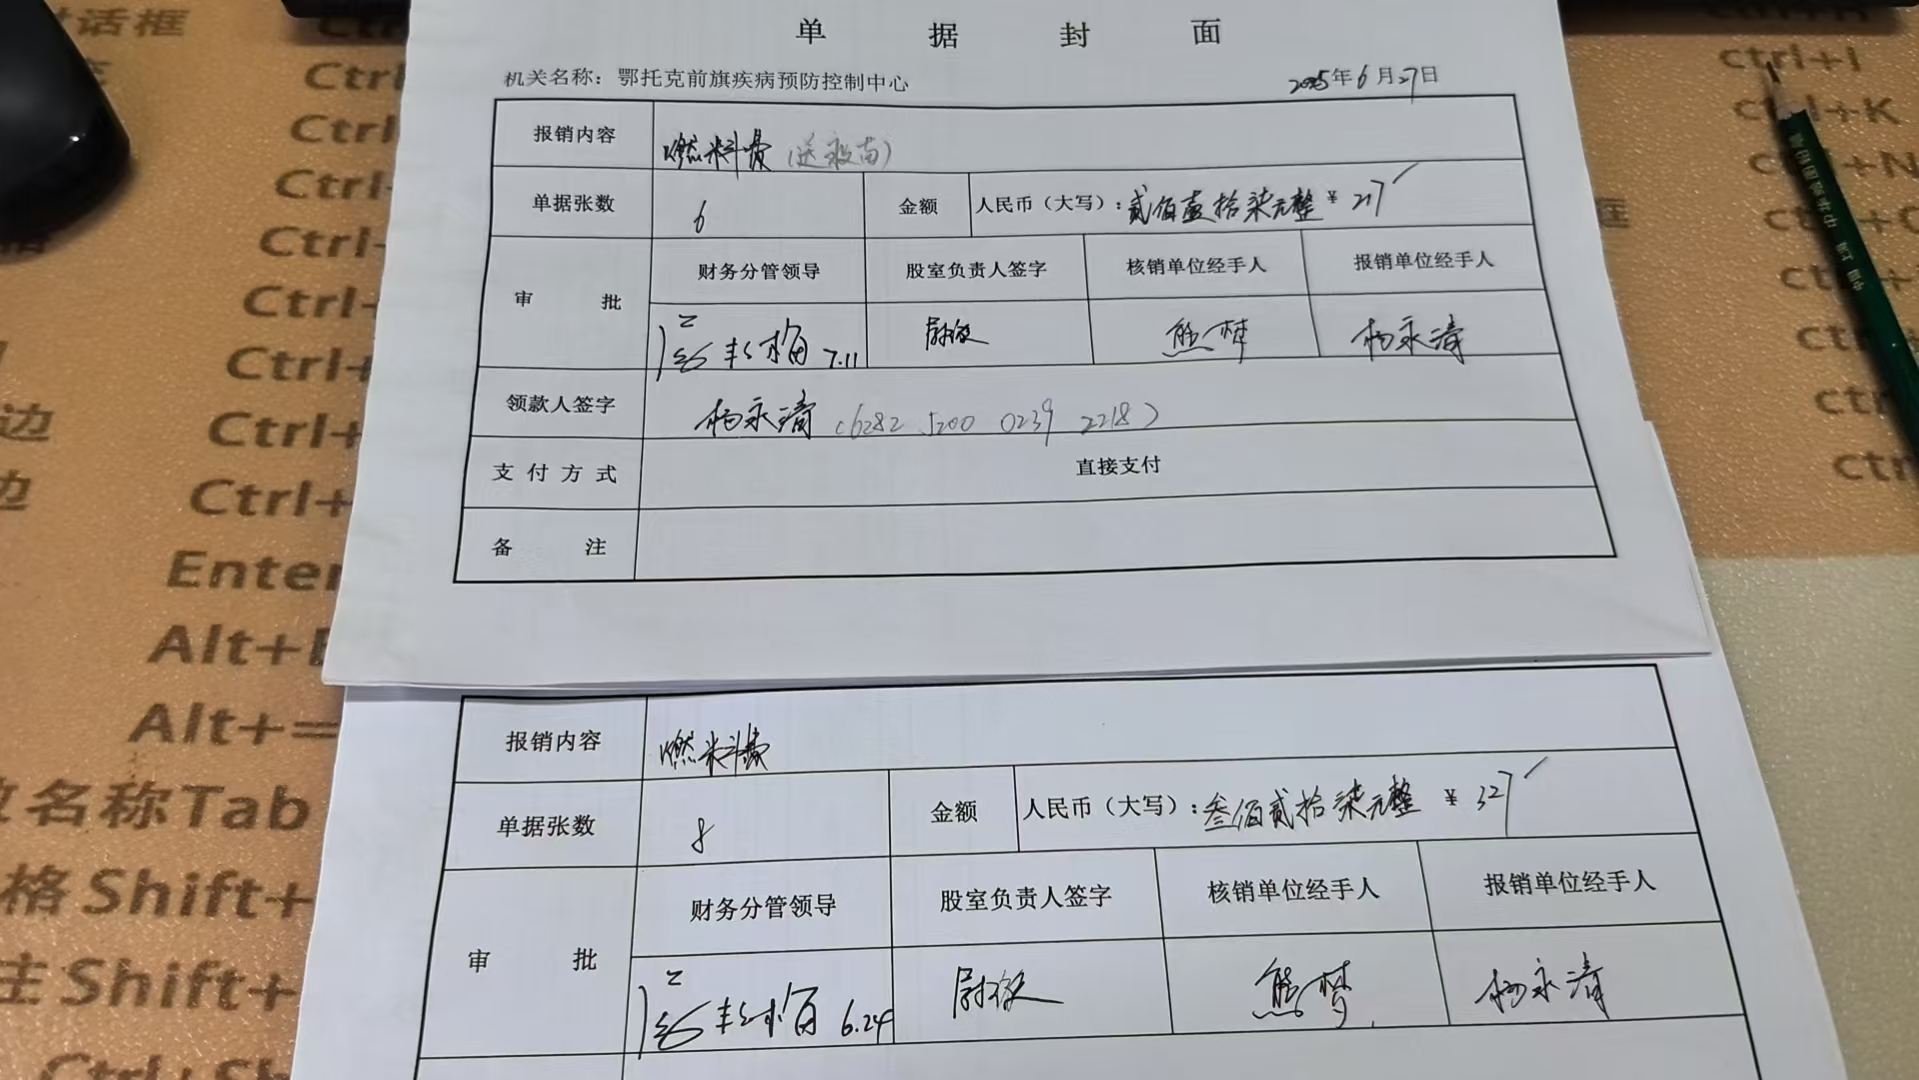 单据封面
机关名称：鄂托克前旗疾病预防控制中心 2025年6月27日
报销内容 燃料费（送疫苗）
单据张数 6 金额 人民币（大写）：贰佰壹拾柒元整 ¥ 217
审批 财务分管领导 股室负责人签字 核销单位经手人 报销单位经手人
7.11 熊梦 杨永清
领款人签字 杨永清（6282 5200 0239 2218）
支付方式 直接支付
备注
报销内容 燃料费
单据张数 8 金额 人民币（大写）：叁佰贰拾柒元整 ¥ 327
审批 财务分管领导 股室负责人签字 核销单位经手人 报销单位经手人
6.24 熊梦 杨永清
话框
Ctrl
Ctrl
Ctrl
Ctrl+
Ctrl+
Ctrl+
边 Ctrl+
边 Ctrl+
Enter
Alt+
Alt+=
名称Tab
格Shift+
主Shift+
Ctrl+Sh
ctrl+I
ctrl+K
ctrl+N
框
中国 上海